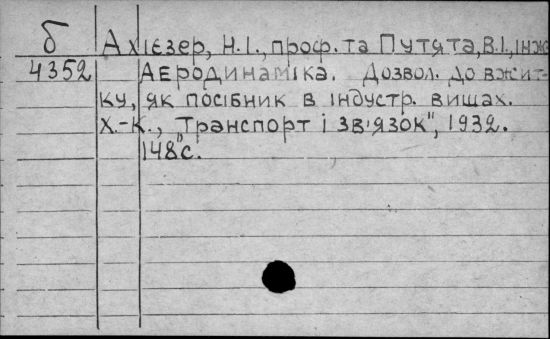 б Ахієзер, Н.І., проф. та Путята, В.І., інж.
4352 Аеродинаміка. Дозвол. до вжит-
ку, як посібник в індустр. вишах.
Х.-К., „Транспорт і зв'язок", 1932.
148 с.